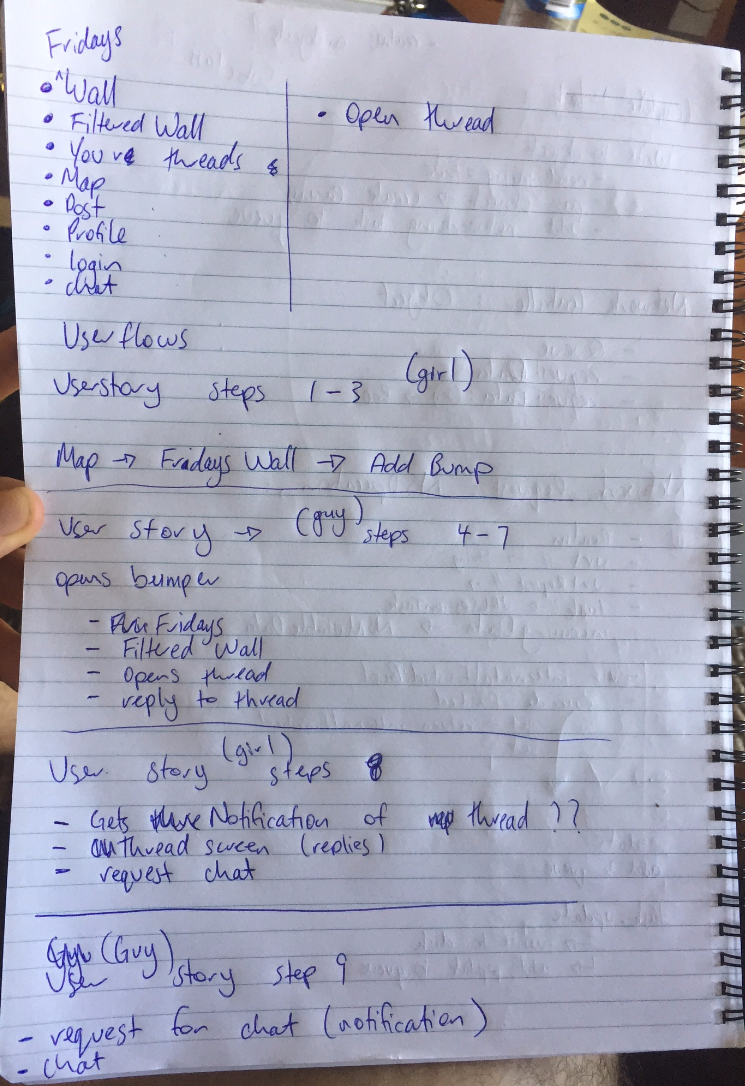 Fridays
• ^Wall
• Filtered Wall
• Your threads
• Map
• Post
• Profile
• login
• chat
• Open thread
User flows
Userstory steps 1-3 (girl)
Map → Fridays Wall → Add Bump
User story → (guy) steps 4-7
opens bumper
- Fridays
- Filtered Wall
- Opens thread
- reply to thread
User story (girl) steps 8
- Gets Notification of thread ??
- thread screen (replies)
- request chat
(Guy)
User story step 9
- request for chat (notification)
- chat